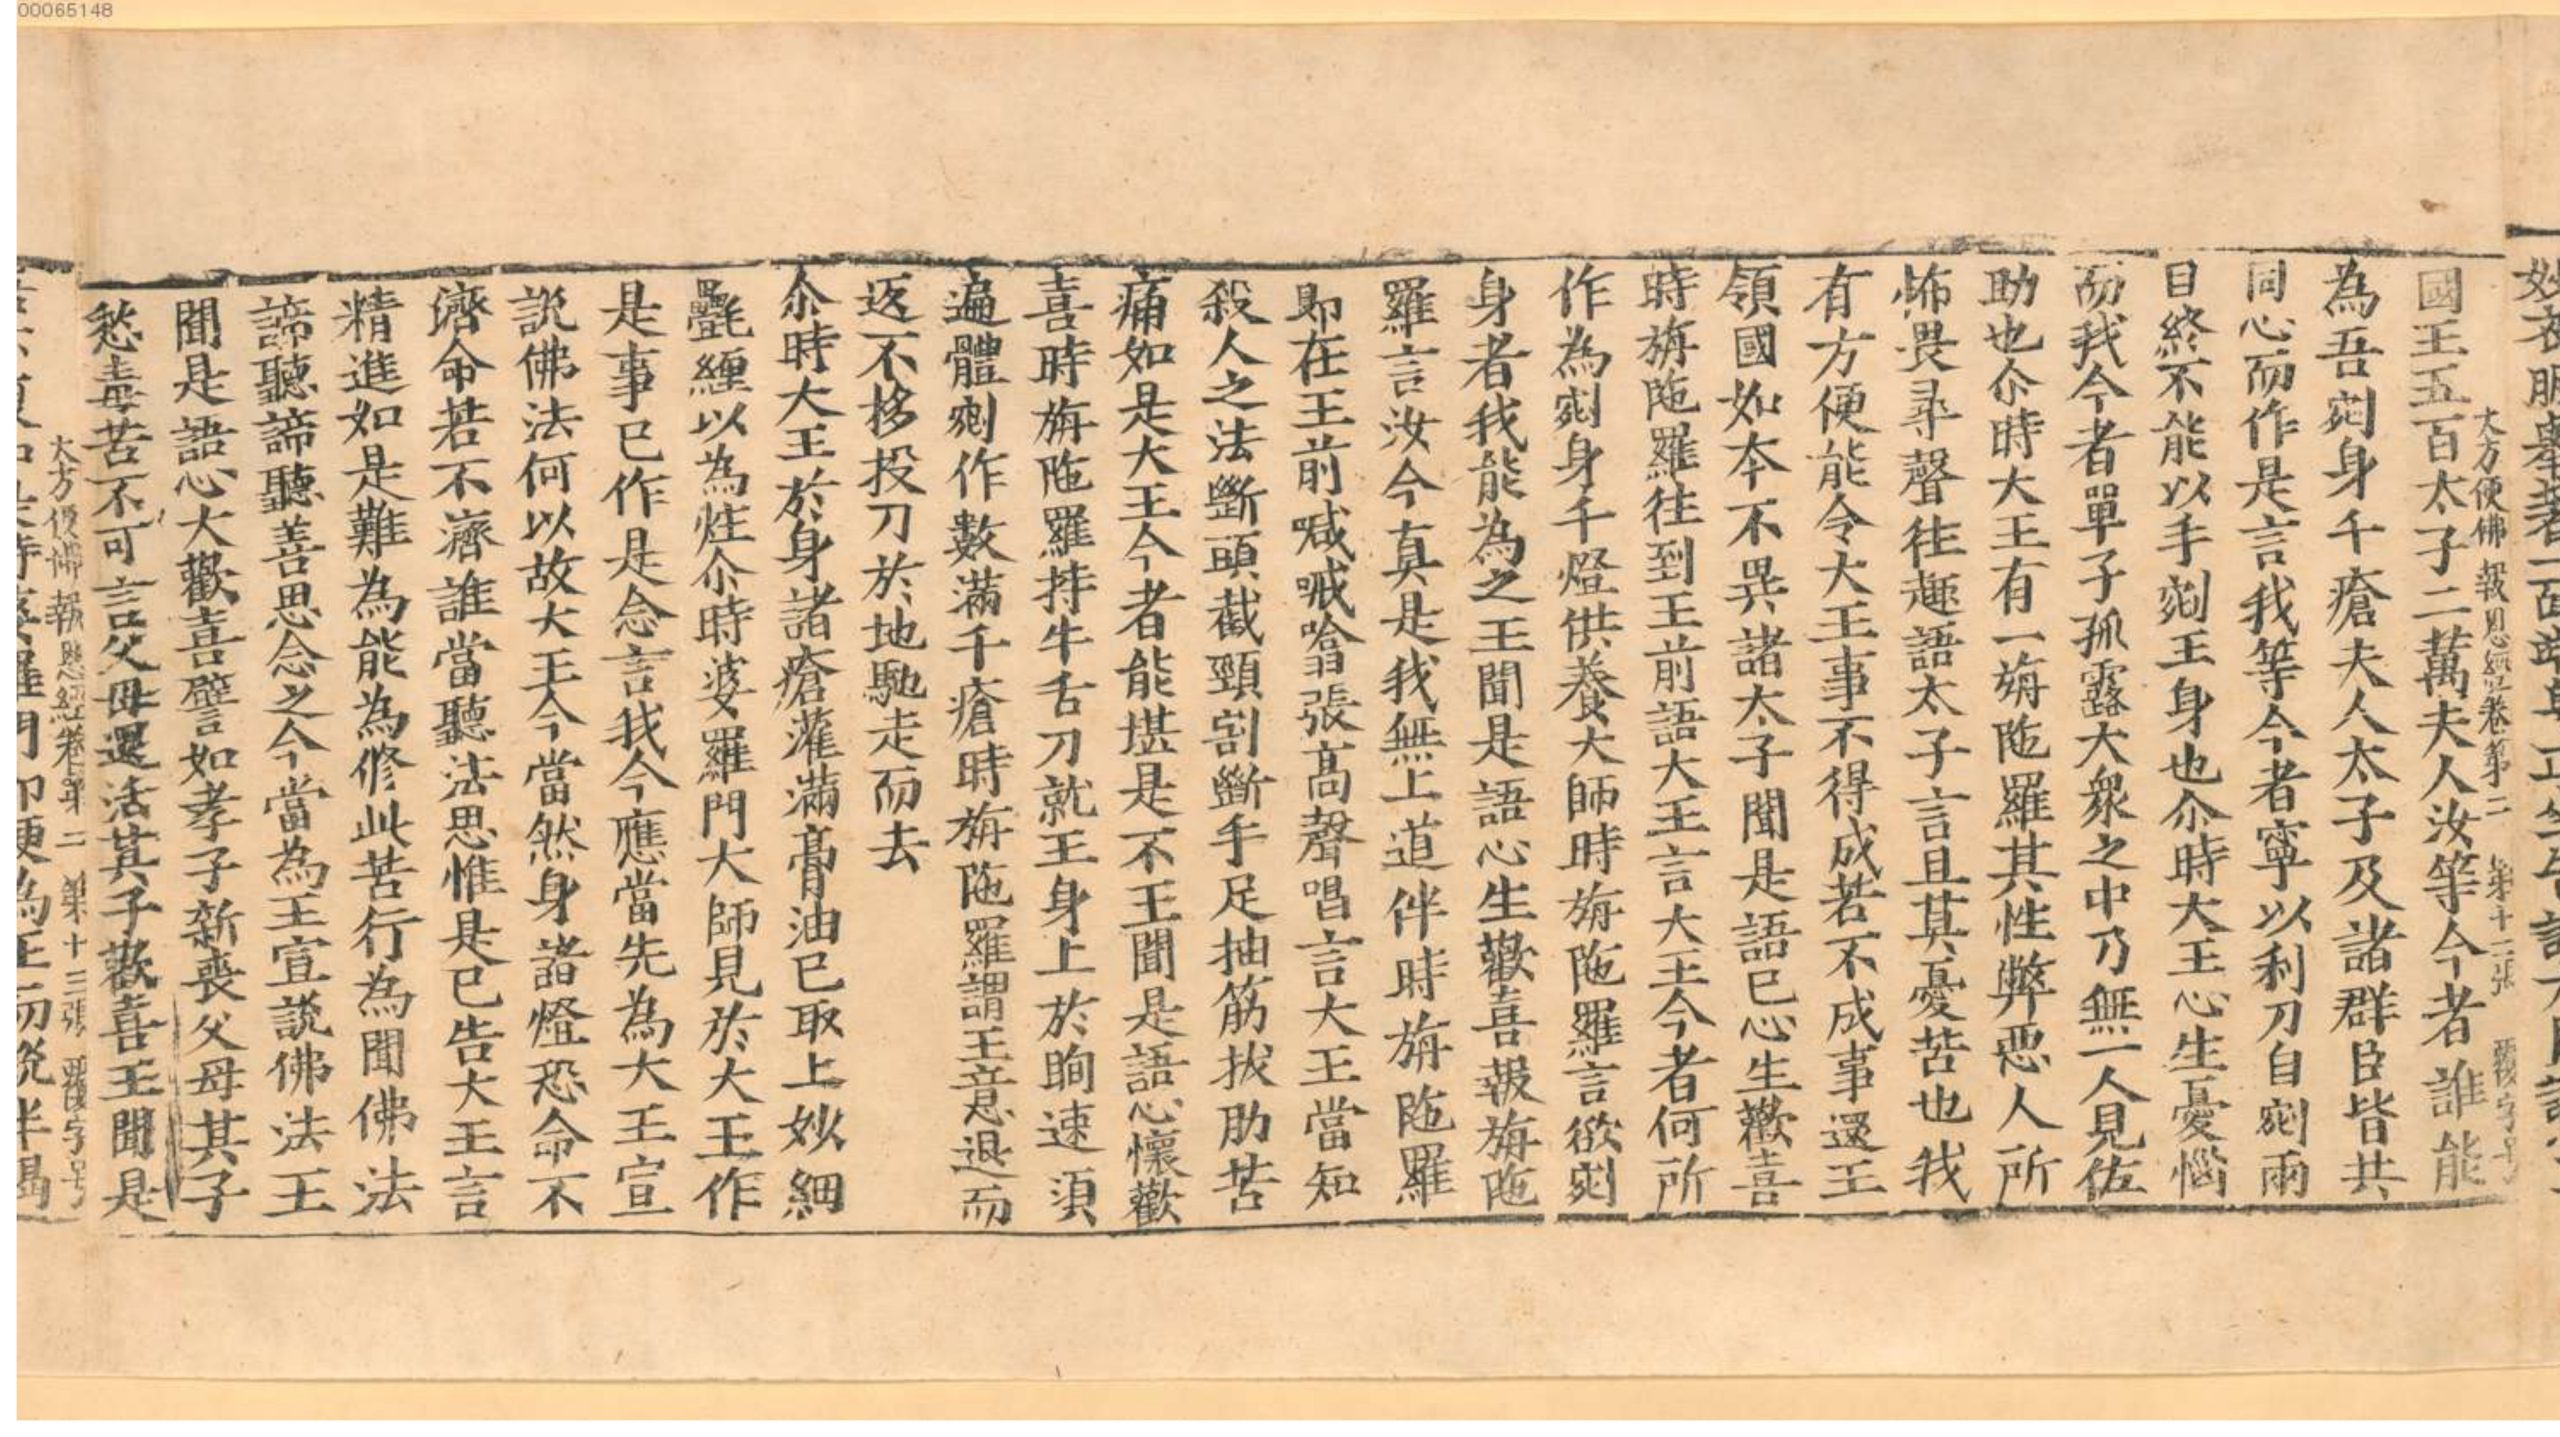 00065148
大方便佛報恩經卷第二 第十二張 覆字号
國王五百太子二萬夫人汝等今者誰能
為吾剜身千瘡夫人太子及諸群臣皆共
同心而作是言我等今者寧以利刀自剜兩
目終不能以手剜王身也尒時大王心生憂惱
而我今者單孑孤露大衆之中乃無一人見佐
助也尒時大王有一旃陁羅其性弊惡人所
怖畏尋聲往趣語太子言且莫憂苦也我
有方便能令大王事不得成若不成事還王
領國如本不異諸太子聞是語已心生歡喜
時旃陁羅往到王前語大王言大王今者何所
作為剜身千燈供養大師時旃陁羅言欲剜
身者我能為之王聞是語心生歡喜報旃陁
羅言汝今真是我無上道伴時旃陁羅
即在王前喊㗙噏張高聲唱言大王當知
殺人之法斷頭截頸割斷手足抽筋拔肋苦
痛如是大王今者能堪是不王聞是語心懷歡
喜時旃陁羅持牛舌刀就王身上於眴速須
遍體剜作數滿千瘡時旃陁羅謂王意退而
返不移投刀於地馳走而去
尒時大王於身諸瘡灌滿膏油已取上妙細
㲲纏以為炷尒時婆羅門大師見於大王作
是事已作是念言我今應當先為大王宣
説佛法何以故大王今當然身諸燈恐命不
濟命若不濟誰當聽法思惟是已告大王言
精進如是難為能為修此苦行為聞佛法
諦聽諦聽善思念之今當為王宣説佛法王
聞是語心大歡喜譬如孝子新喪父母其子
愁毒苦不可言父母還活其子歡喜王聞是
大方便佛報恩經卷第二 第十三張 覆字号